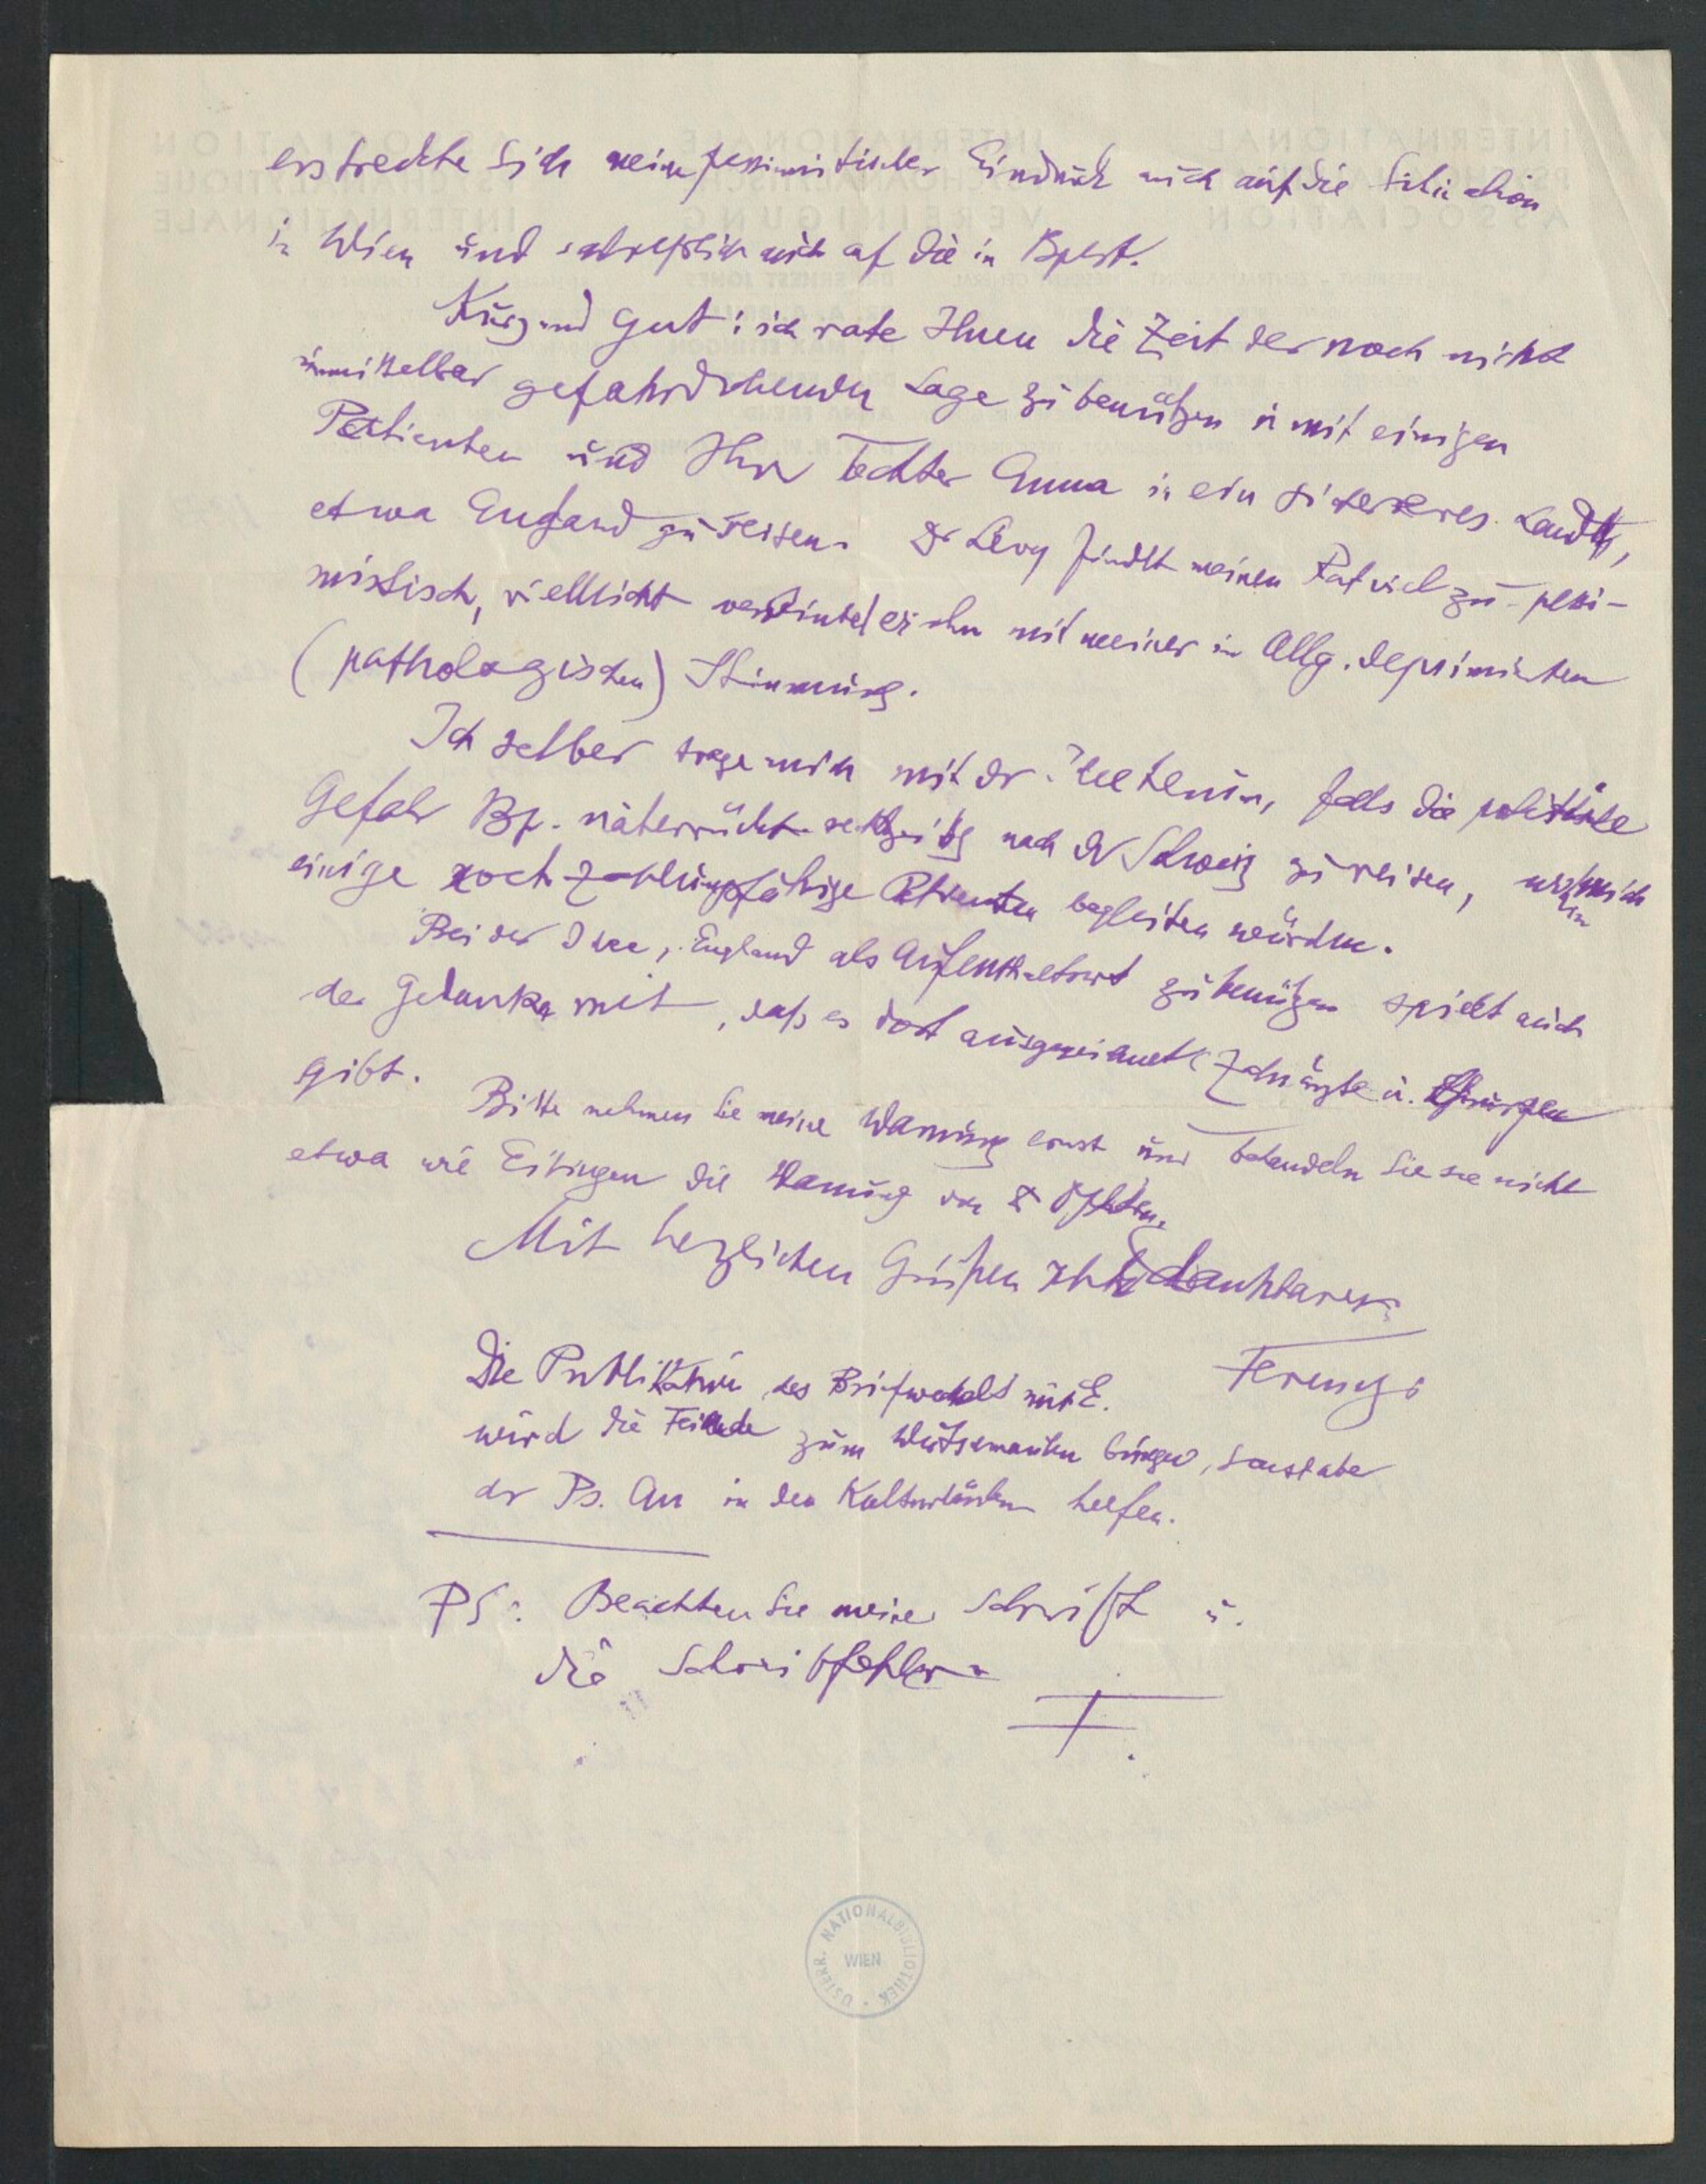 erstreckte sich mein pessimistischer Eindruck auch auf die Situation
in Wien und schließlich auch auf die in Bpest.
Kurz und gut: ich rate Ihnen die Zeit der noch nicht
unmittelbar gefahrdrohenden Lage zu benützen u mit einigen
Patienten und Ihrer Tochter Anna in ein sichereres Land,
etwa England zu reisen. Dr Lévy findet meinen Rat viel zu pessi-
mistisch, vielleicht er ihn mit meiner im Allg. deprimierten
(pathologischen) Stimmung.
Ich selber trage mich mit der Idee, falls die politische
Gefahr Bp. näherrückt rechtzeitig nach der Schweiz zu reisen, wohin mich
einige noch zahlungsfähige Patienten begleiten würden.
Bei der Idee, England als Aufenthaltsort zu benützen spielt auch
der Gedanke mit, daß es dort ausgezeichnete Zahnärzte u. Chirurgen
gibt.
Bitte nehmen Sie meine Warnung ernst und behandeln Sie sie nicht
etwa wie Eitingon die Warnung von
Mit herzlichen Grüßen Ihr dankbarer
Ferenczi
Die Publikation des Briefwechsels mit E.
wird die Feinde zum bringen, sonst aber
der Ps. An in den Kulturländern helfen.
PS: Beachten Sie meine Schrift u.
die Schreibfehler
F.
ÖSTERR. NATIONALBIBLIOTHEK
WIEN
INTERNATIONAL
INTERNATIONALE
ASSOCIATION
ASSOCIATION
VEREINIGUNG
INTERNATIONALE
ERNEST JONES
ANNA FREUD